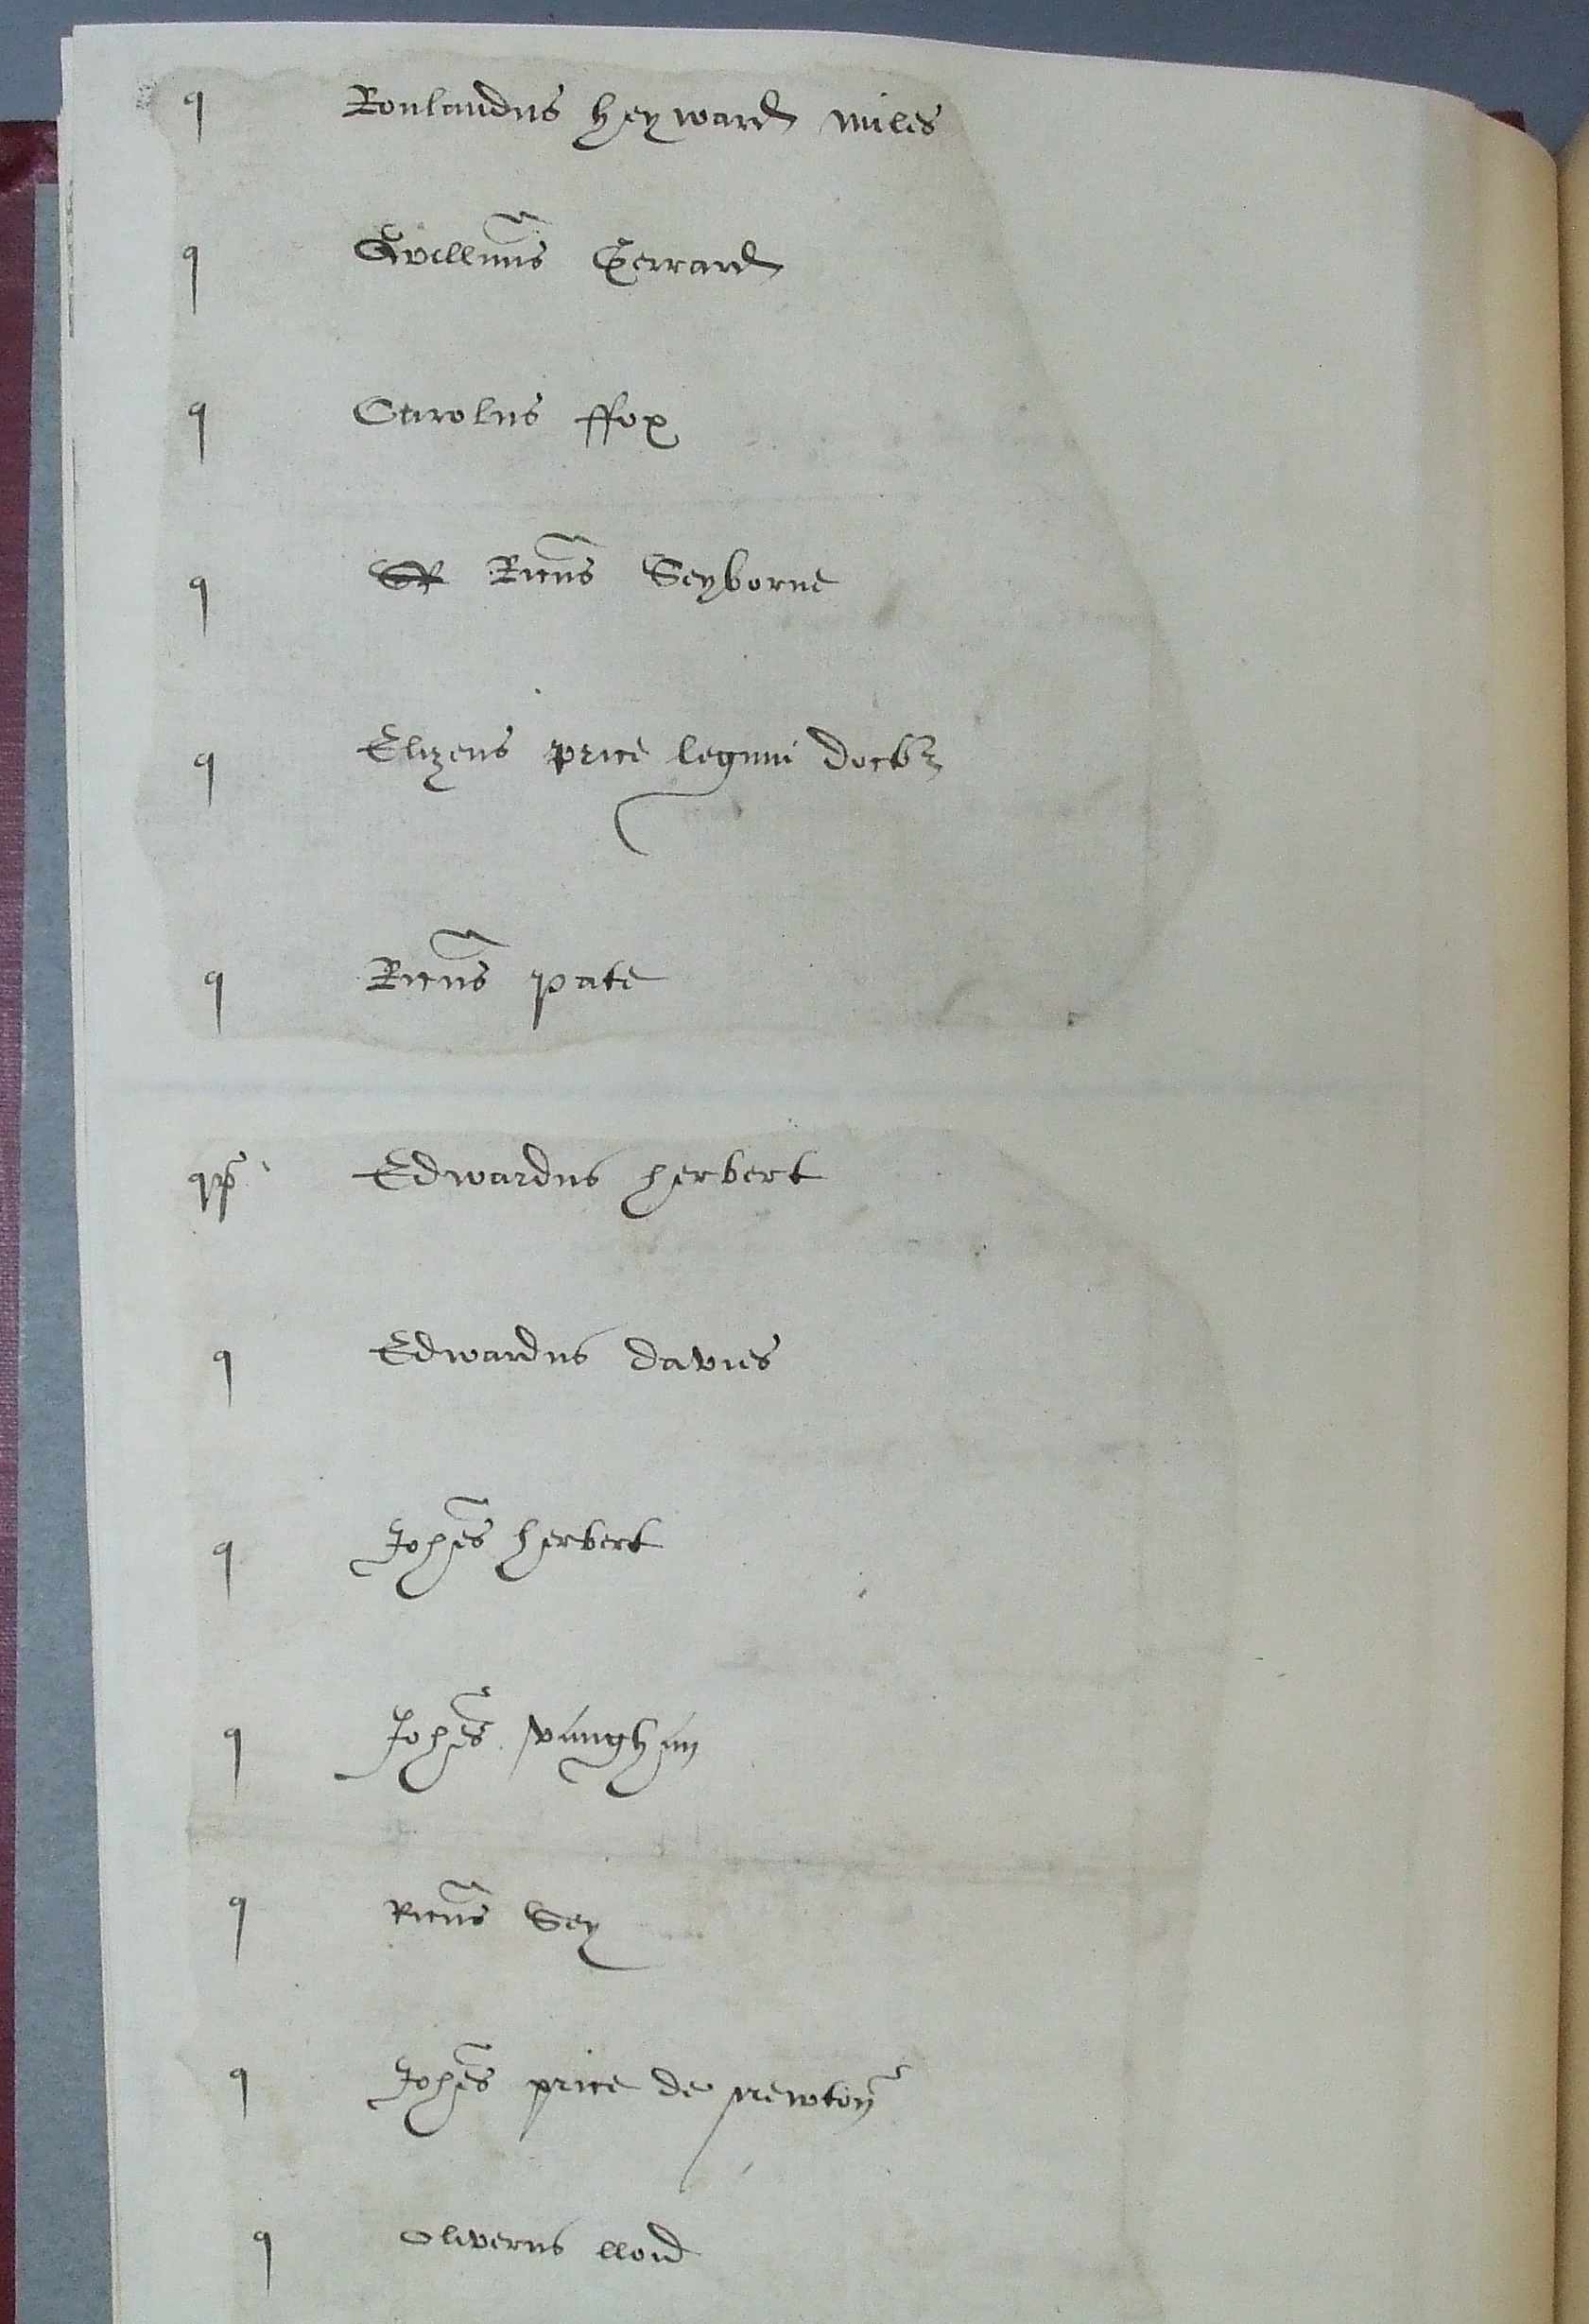 q Roulandus heyward miles
q Willmus Gerrard
q Carolus ffox
q Ricus Seyborne
q Elizeus price legum doctor
q Ricus pate
qp Edwardus herbert
q Edwardus davies
q Johes herbert
q Johes vaughan
q Ricus Sey
q Johes price de newton
q Oliverus lloid